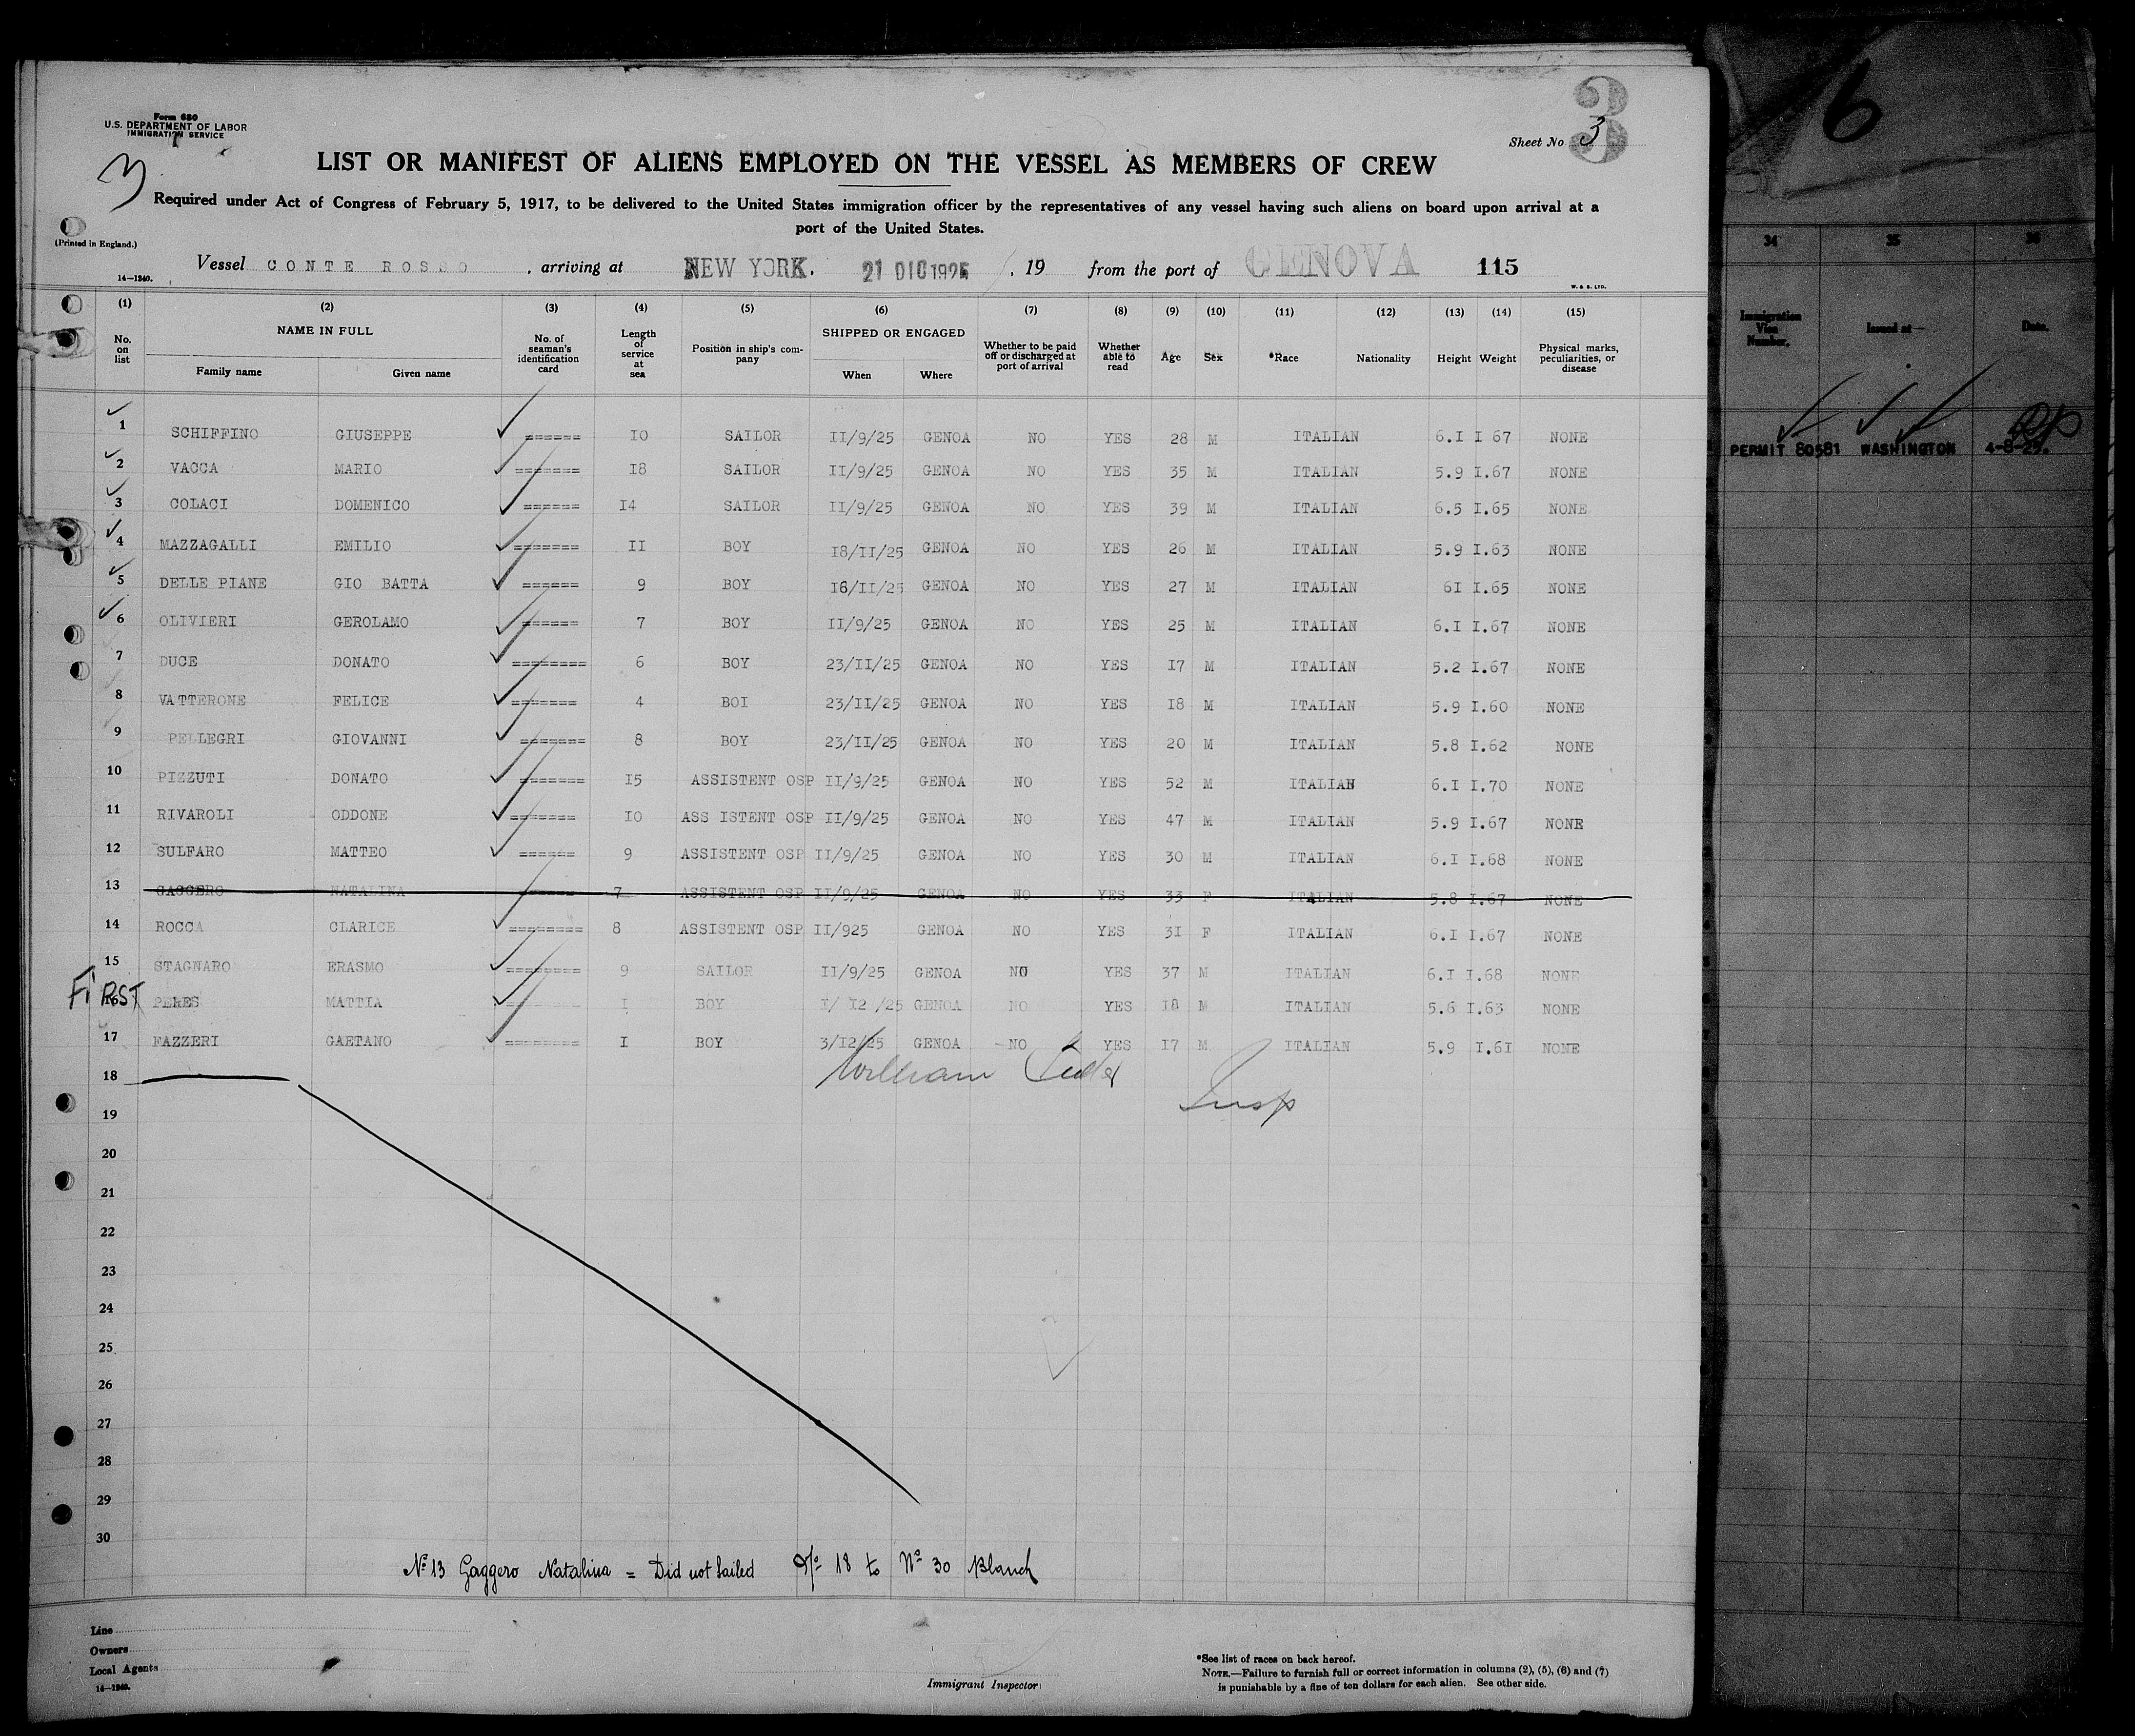 Form 680
U.S. DEPARTMENT OF LABOR
IMMIGRATION SERVICE
3
Sheet No 3
3
6
LIST OR MANIFEST OF ALIENS EMPLOYED ON THE VESSEL AS MEMBERS OF CREW
Required under Act of Congress of February 5, 1917, to be delivered to the United States immigration officer by the representatives of any vessel having such aliens on board upon arrival at a
port of the United States.
(Printed in England.)
14—1240.
Vessel CONTE ROSSO, arriving at NEW YORK. 21 DIC 1925, 19 from the port of GENOVA 115
W. & S. LTD.
(1) (2) (3) (4) (5) (6) (7) (8) (9) (10) (11) (12) (13) (14) (15)
No. on list NAME IN FULL Family name Given name No. of seaman's identification card Length of service at sea Position in ship's company SHIPPED OR ENGAGED When Where Whether to be paid off or discharged at port of arrival Whether able to read Age Sex *Race Nationality Height Weight Physical marks, peculiarities, or disease
1 SCHIFFINO GIUSEPPE ====== IO SAILOR II/9/25 GENOA NO YES 28 M ITALIAN 6.I I 67 NONE
2 VACCA MARIO ======= I8 SAILOR II/9/25 GENOA NO YES 35 M ITALIAN 5.9 I.67 NONE
3 COLACI DOMENICO ====== I4 SAILOR II/9/25 GENOA NO YES 39 M ITALIAN 6.5 I.65 NONE
4 MAZZAGALLI EMILIO ======= II BOY I8/II/25 GENOA NO YES 26 M ITALIAN 5.9 I.63 NONE
5 DELLE PIANE GIO BATTA ====== 9 BOY I6/II/25 GENOA NO YES 27 M ITALIAN 6I I.65 NONE
6 OLIVIERI GEROLAMO ====== 7 BOY II/9/25 GENOA NO YES 25 M ITALIAN 6.I I.67 NONE
7 DUCE DONATO ======== 6 BOY 23/II/25 GENOA NO YES I7 M ITALIAN 5.2 I.67 NONE
8 VATTERONE FELICE ======= 4 BOI 23/II/25 GENOA NO YES I8 M ITALIAN 5.9 I.60 NONE
9 PELLEGRI GIOVANNI ======= 8 BOY 23/II/25 GENOA NO YES 20 M ITALIAN 5.8 I.62 NONE
10 PIZZUTI DONATO ======= I5 ASSISTENT OSP II/9/25 GENOA NO YES 52 M ITALIAN 6.I I.70 NONE
11 RIVAROLI ODDONE ======= IO ASS ISTENT OSP II/9/25 GENOA NO YES 47 M ITALIAN 5.9 I.67 NONE
12 SULFARO MATTEO ====== 9 ASSISTENT OSP II/9/25 GENOA NO YES 30 M ITALIAN 6.I I.68 NONE
13 GAGGERO NATALINA ====== 7 ASSISTENT OSP II/9/25 GENOA NO YES 33 F ITALIAN 5.8 I.67 NONE
14 ROCCA CLARICE ======== 8 ASSISTENT OSP II/925 GENOA NO YES 3I F ITALIAN 6.I I.67 NONE
15 STAGNARO ERASMO ======== 9 SAILOR II/9/25 GENOA NO YES 37 M ITALIAN 6.I I.68 NONE
FiRST 16 MATTIA I BOY I/ I2 /25 GENOA NO YES I8 M ITALIAN 5.6 I.63 NONE
17 FAZZERI GAETANO ======== I BOY 3/I2/25 GENOA NO YES I7 M ITALIAN 5.9 I.6I NONE
William
Insp
18
19
20
21
22
23
24
25
26
27
28
29
30
Nº 13 Gaggero Natalina = Did not sailed Nº 18 to Nº 30 Blanch
Line
Owners
Local Agents
14—1240.
Immigrant Inspector
*See list of races on back hereof.
NOTE.—Failure to furnish full or correct information in columns (2), (5), (6) and (7)
is punishable by a fine of ten dollars for each alien. See other side.
34 35 36
Immigration Visa Number. Issued at— Date.
PERMIT 80581 WASHINGTON 4-8-29.